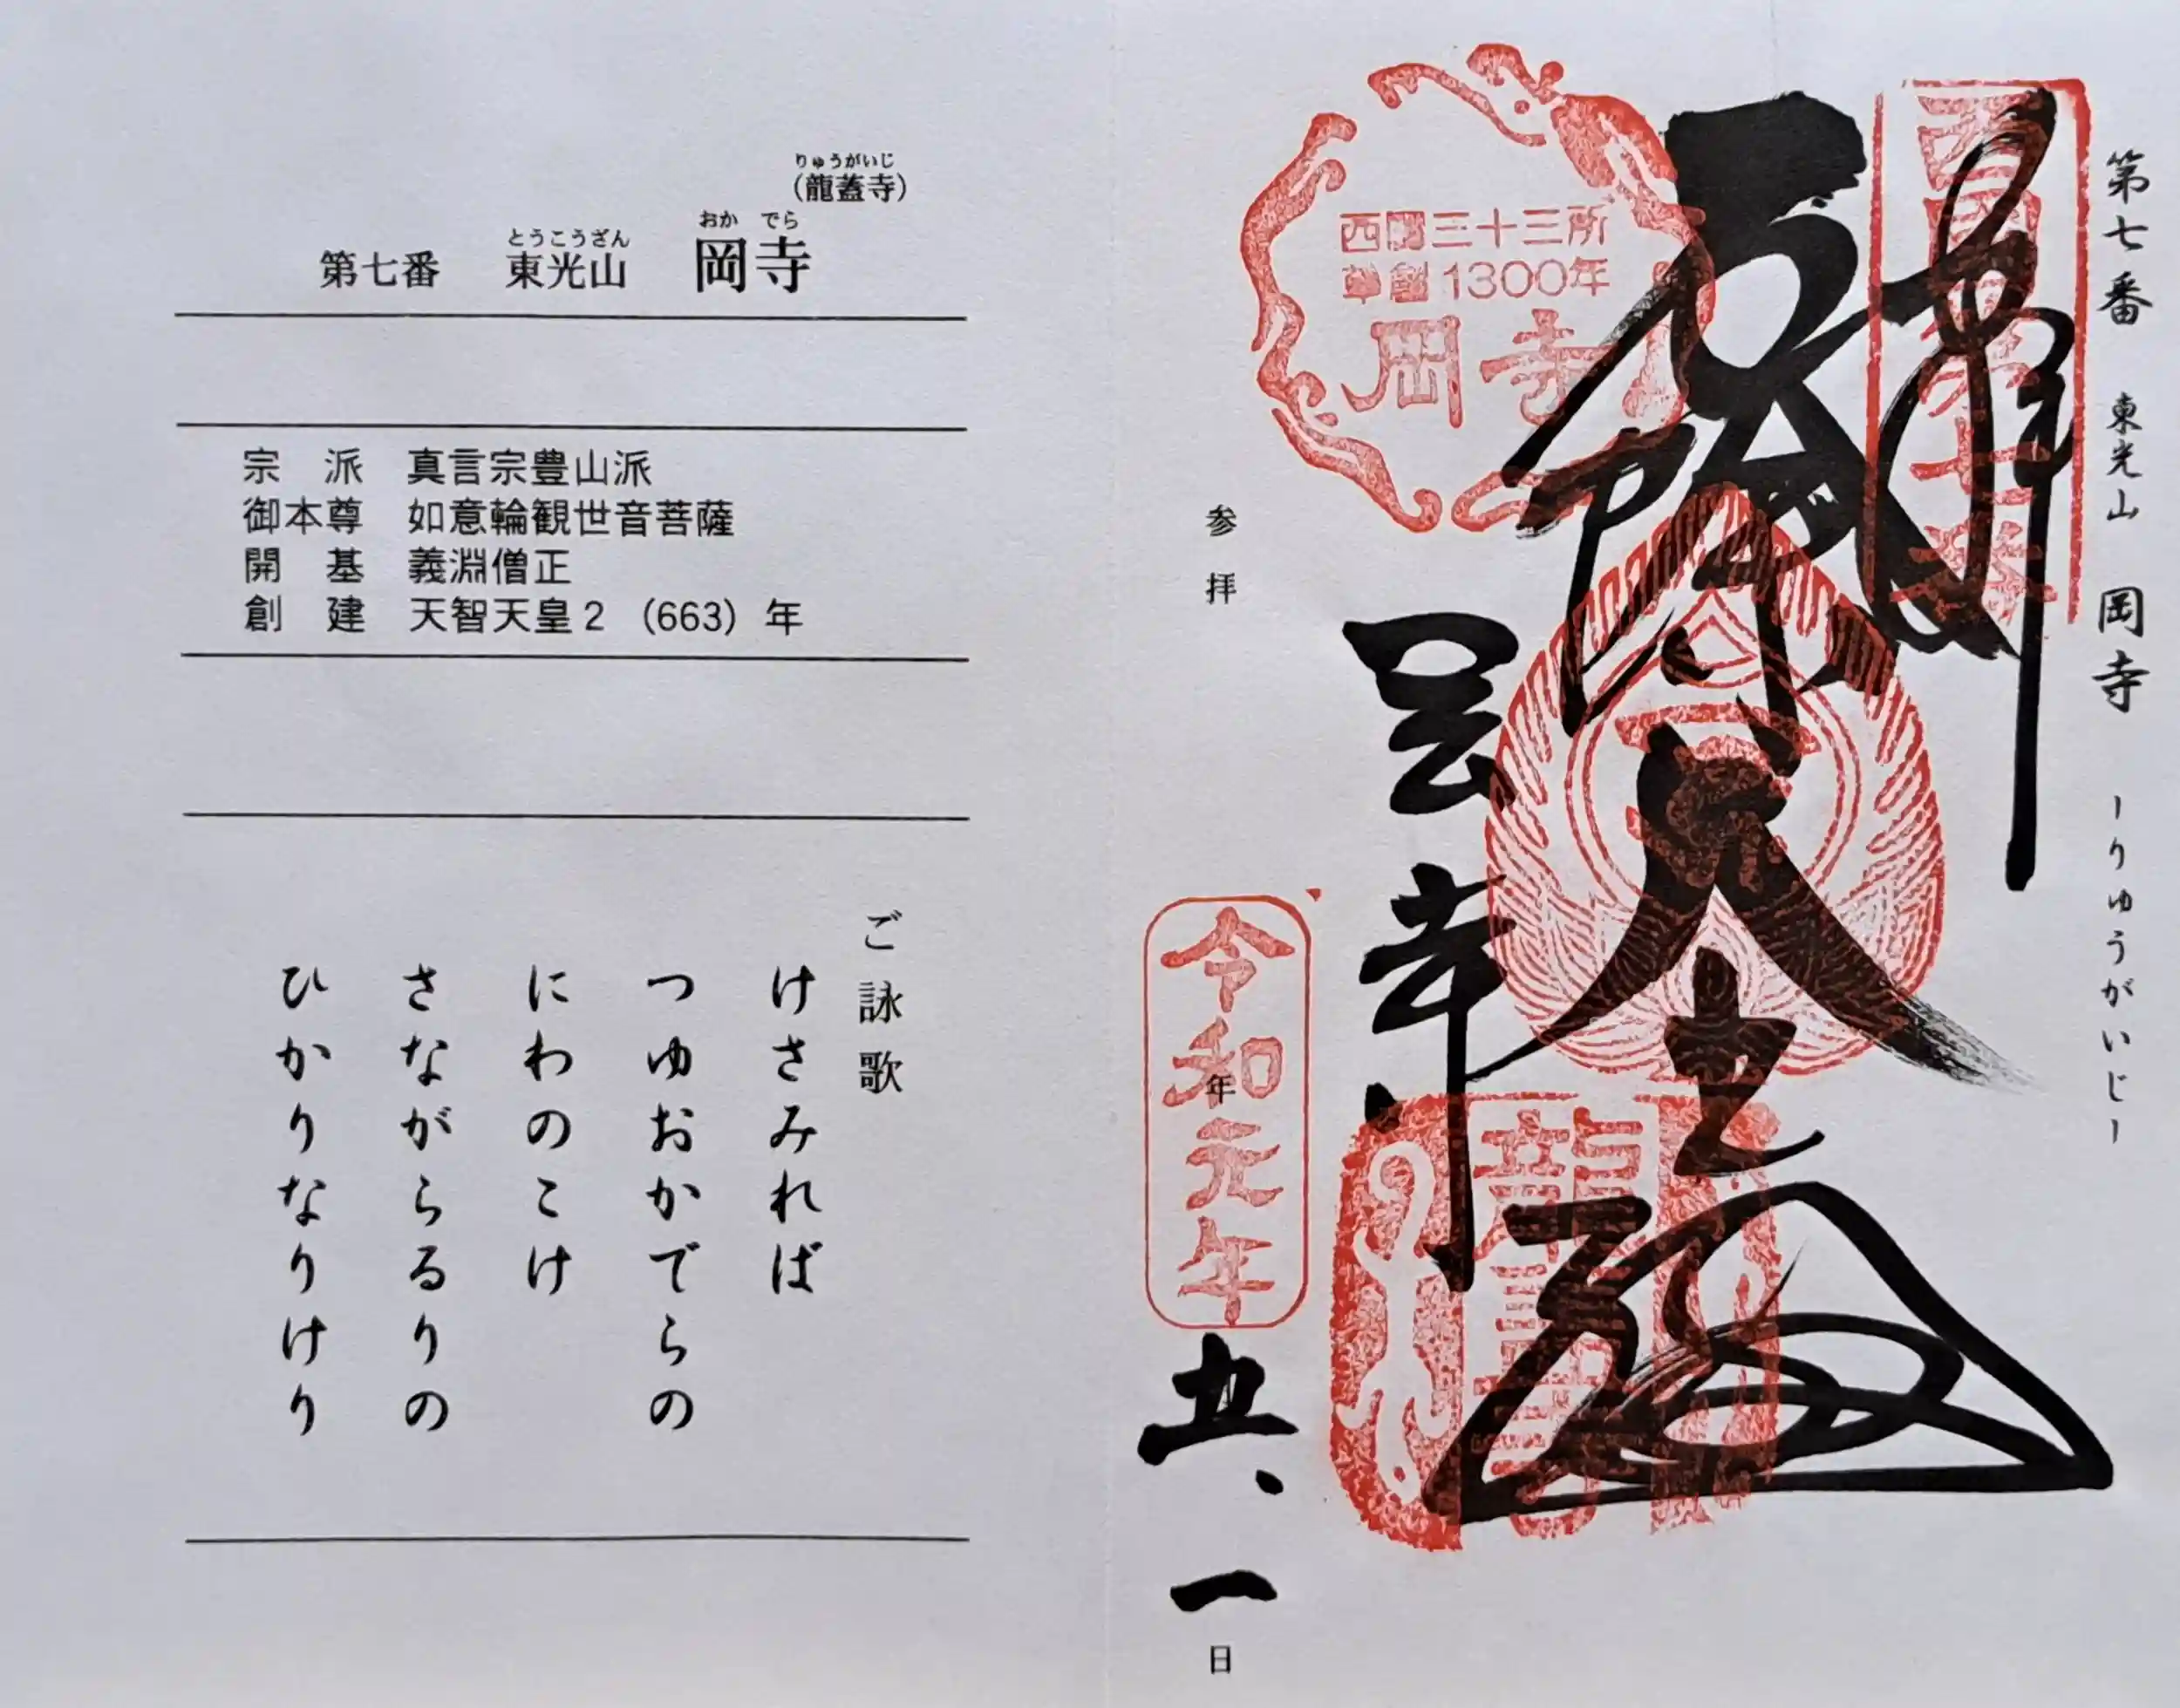 りゅうがいじ
（龍蓋寺）
とうこうざん おか でら
第七番 東光山 岡寺
宗 派 真言宗豊山派
御本尊 如意輪観世音菩薩
開 基 義淵僧正
創 建 天智天皇2（663）年
ご詠歌
けさみれば
つゆおかでらの
にわのこけ
さながらるりの
ひかりなりけり
第七番 東光山 岡寺 −りゅうがいじ−
奉拝
西國三十三所
草創1300年
岡寺
岡寺
参拝
令和元年
年
五、一
日